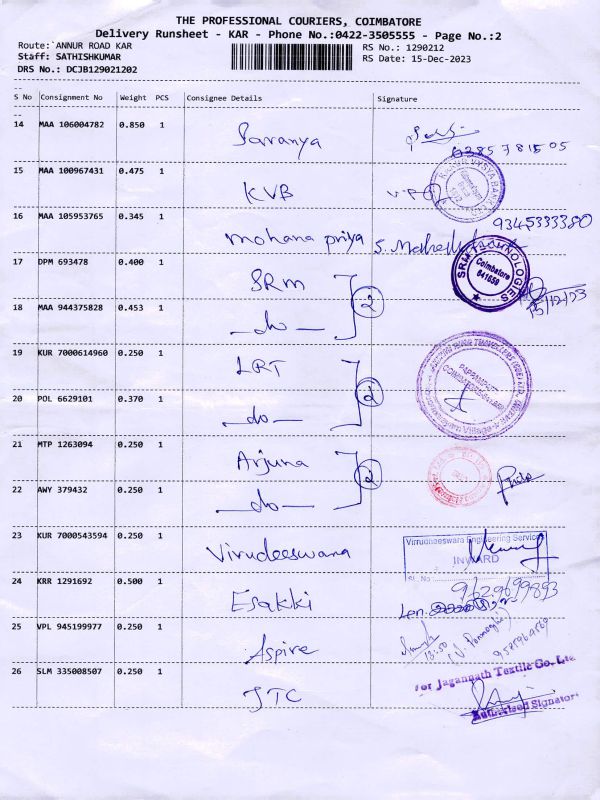 THE PROFESSIONAL COURIERS, COIMBATORE
Delivery Runsheet - KAR - Phone No.:0422-3505555 - Page No.:2
Route: ANNUR ROAD KAR
RS No.: 1290212
Staff: SATHISHKUMAR
RS Date: 15-Dec-2023
DRS No.: DCJB129021202
S No Consignment No Weight PCS Consignee Details Signature
14 MAA 106004782 0.850 1 Saranya
15 MAA 100967431 0.475 1 KVB
16 MAA 105953765 0.345 1 mohana priya 9345333380
17 DPM 693478 0.400 1 SRM 2
SRM TECHNOLOGIES
Coimbatore
641659
15/12/23
18 MAA 944375828 0.453 1 —do—
19 KUR 7000614960 0.250 1 LRT 2
20 POL 6629101 0.370 1 —do—
21 MTP 1263094 0.250 1 Arjuna 2
22 AWY 379432 0.250 1 —do—
23 KUR 7000543594 0.250 1 Virudeeswara
Virrudheeswara Engineering Services
INWARD
SL No
24 KRR 1291692 0.500 1 Esakki
25 VPL 945199977 0.250 1 Aspire
26 SLM 335008507 0.250 1 JTC
For Jagannath Textile Co. Ltd
Authorised Signatory